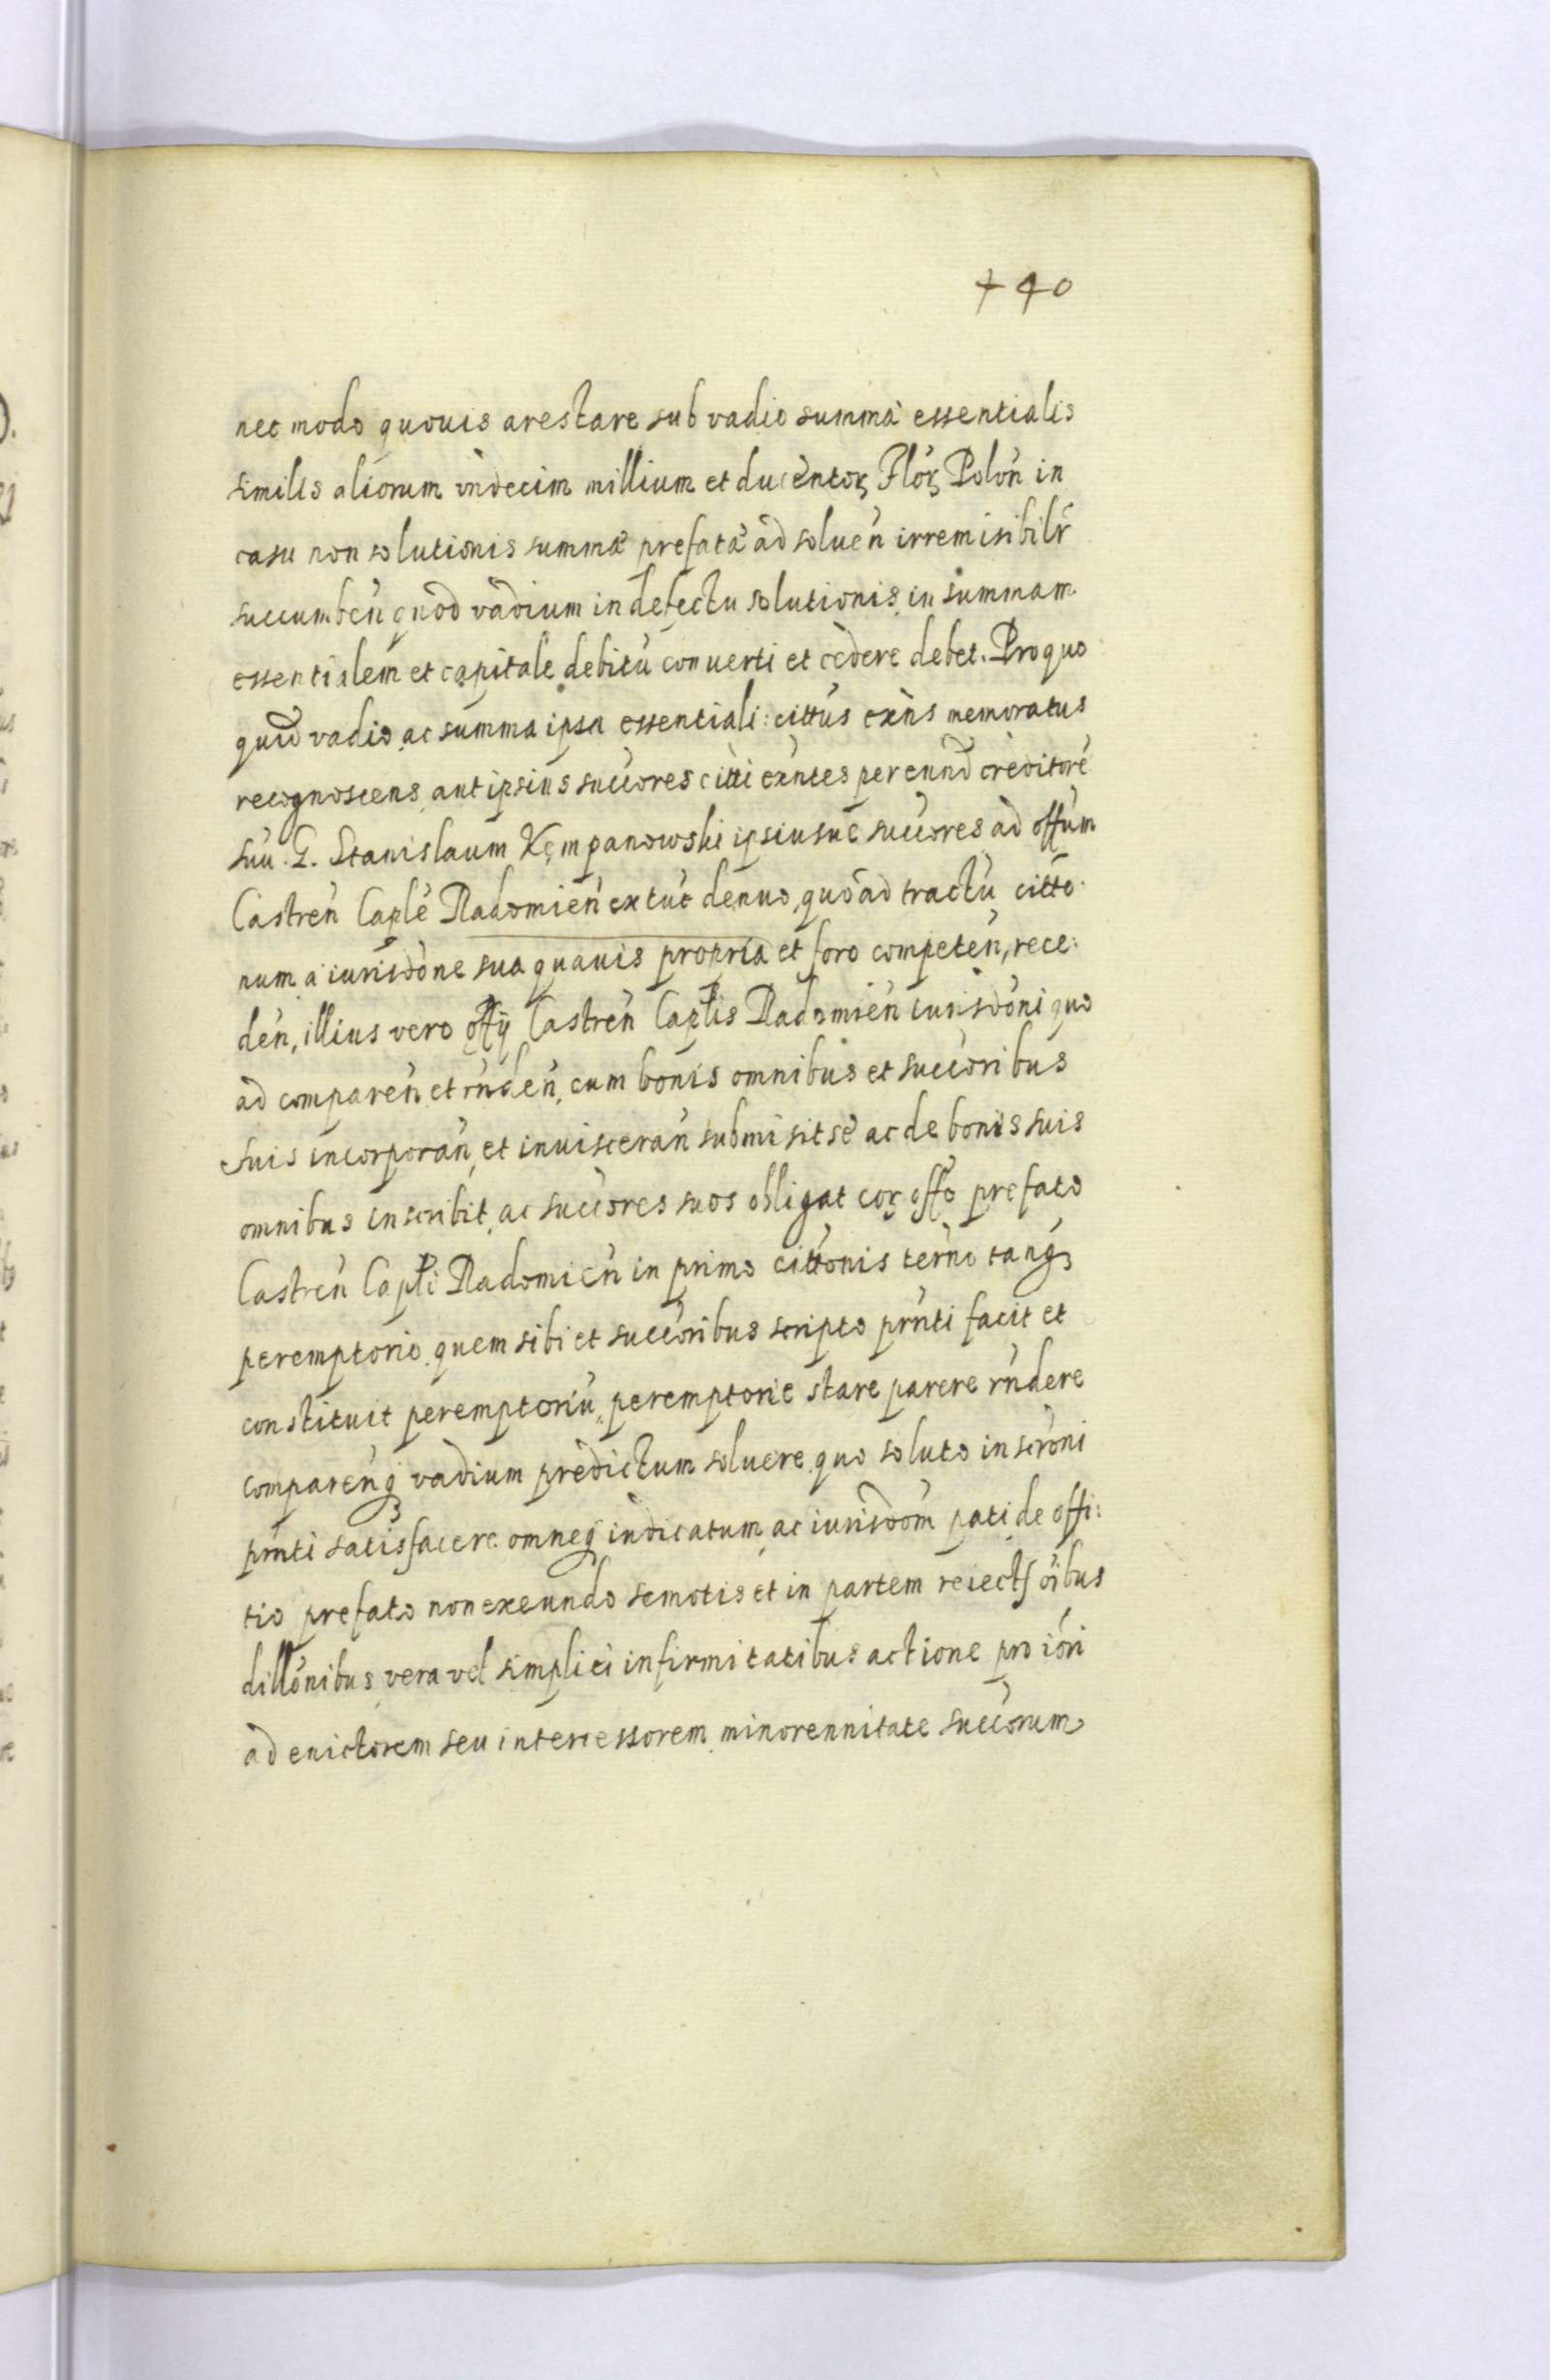 740
nec modo quouis arestare sub vadio summæ essentialis
similis aliorum vndecim millium et ducentoꝝ Floꝝ Polon̄ in
casu non solutionis summæ prefatæ ad soluen̄ irremisibilr̄
succumben̄ quod vadium in defectu solutionis in summam
essentialem et capitale debitū conuerti et cedere debet. Pro quo
quid vadio ac summa ipsa essentiali: cittus exn̄s memoratus
recognoscens aut ipsius succores citti exn̄tes per eund creditorē
suū. G. Stanislaum Kęmpanowski ipsiusue succores ad offum
Castren̄ Caplē Radomien̄ ex tūc denuo, quo ad tractū citto
num a iurisdōne sua quauis propria et foro competen̄, rece:
den̄, illius vero offy Castren̄ Caplis Radomien̄ iurisdōni quo
ad comparen̄ et rn̄den̄, cum bonis omnibus et succoribus
suis incorporan̄, et inuisceran̄ submisit se ac de bonis suis
omnibus inscribit, ac succores suos obligat coꝝ offo prefato
Castren̄ Capli Radomien̄ in primo cittonis termo tanq̄ꝫ
peremptorio quem sibi et succoribus scripto prn̄ti facit et
constituit peremptoriū, peremptorie stare parere rn̄dere
comparenqꝫ vadium predictum soluere quo soluto inscrōni
prn̄ti satisfacere omneqꝫ indicatum ac iurisdōm pati de offi:
tio prefato non exeundo semotis et in partem reiectꝭ oībus
dillōnibus vera vel simplici infirmitatibus actione pro iōri
ad euictorem seu intercessorem minorennitate succorum